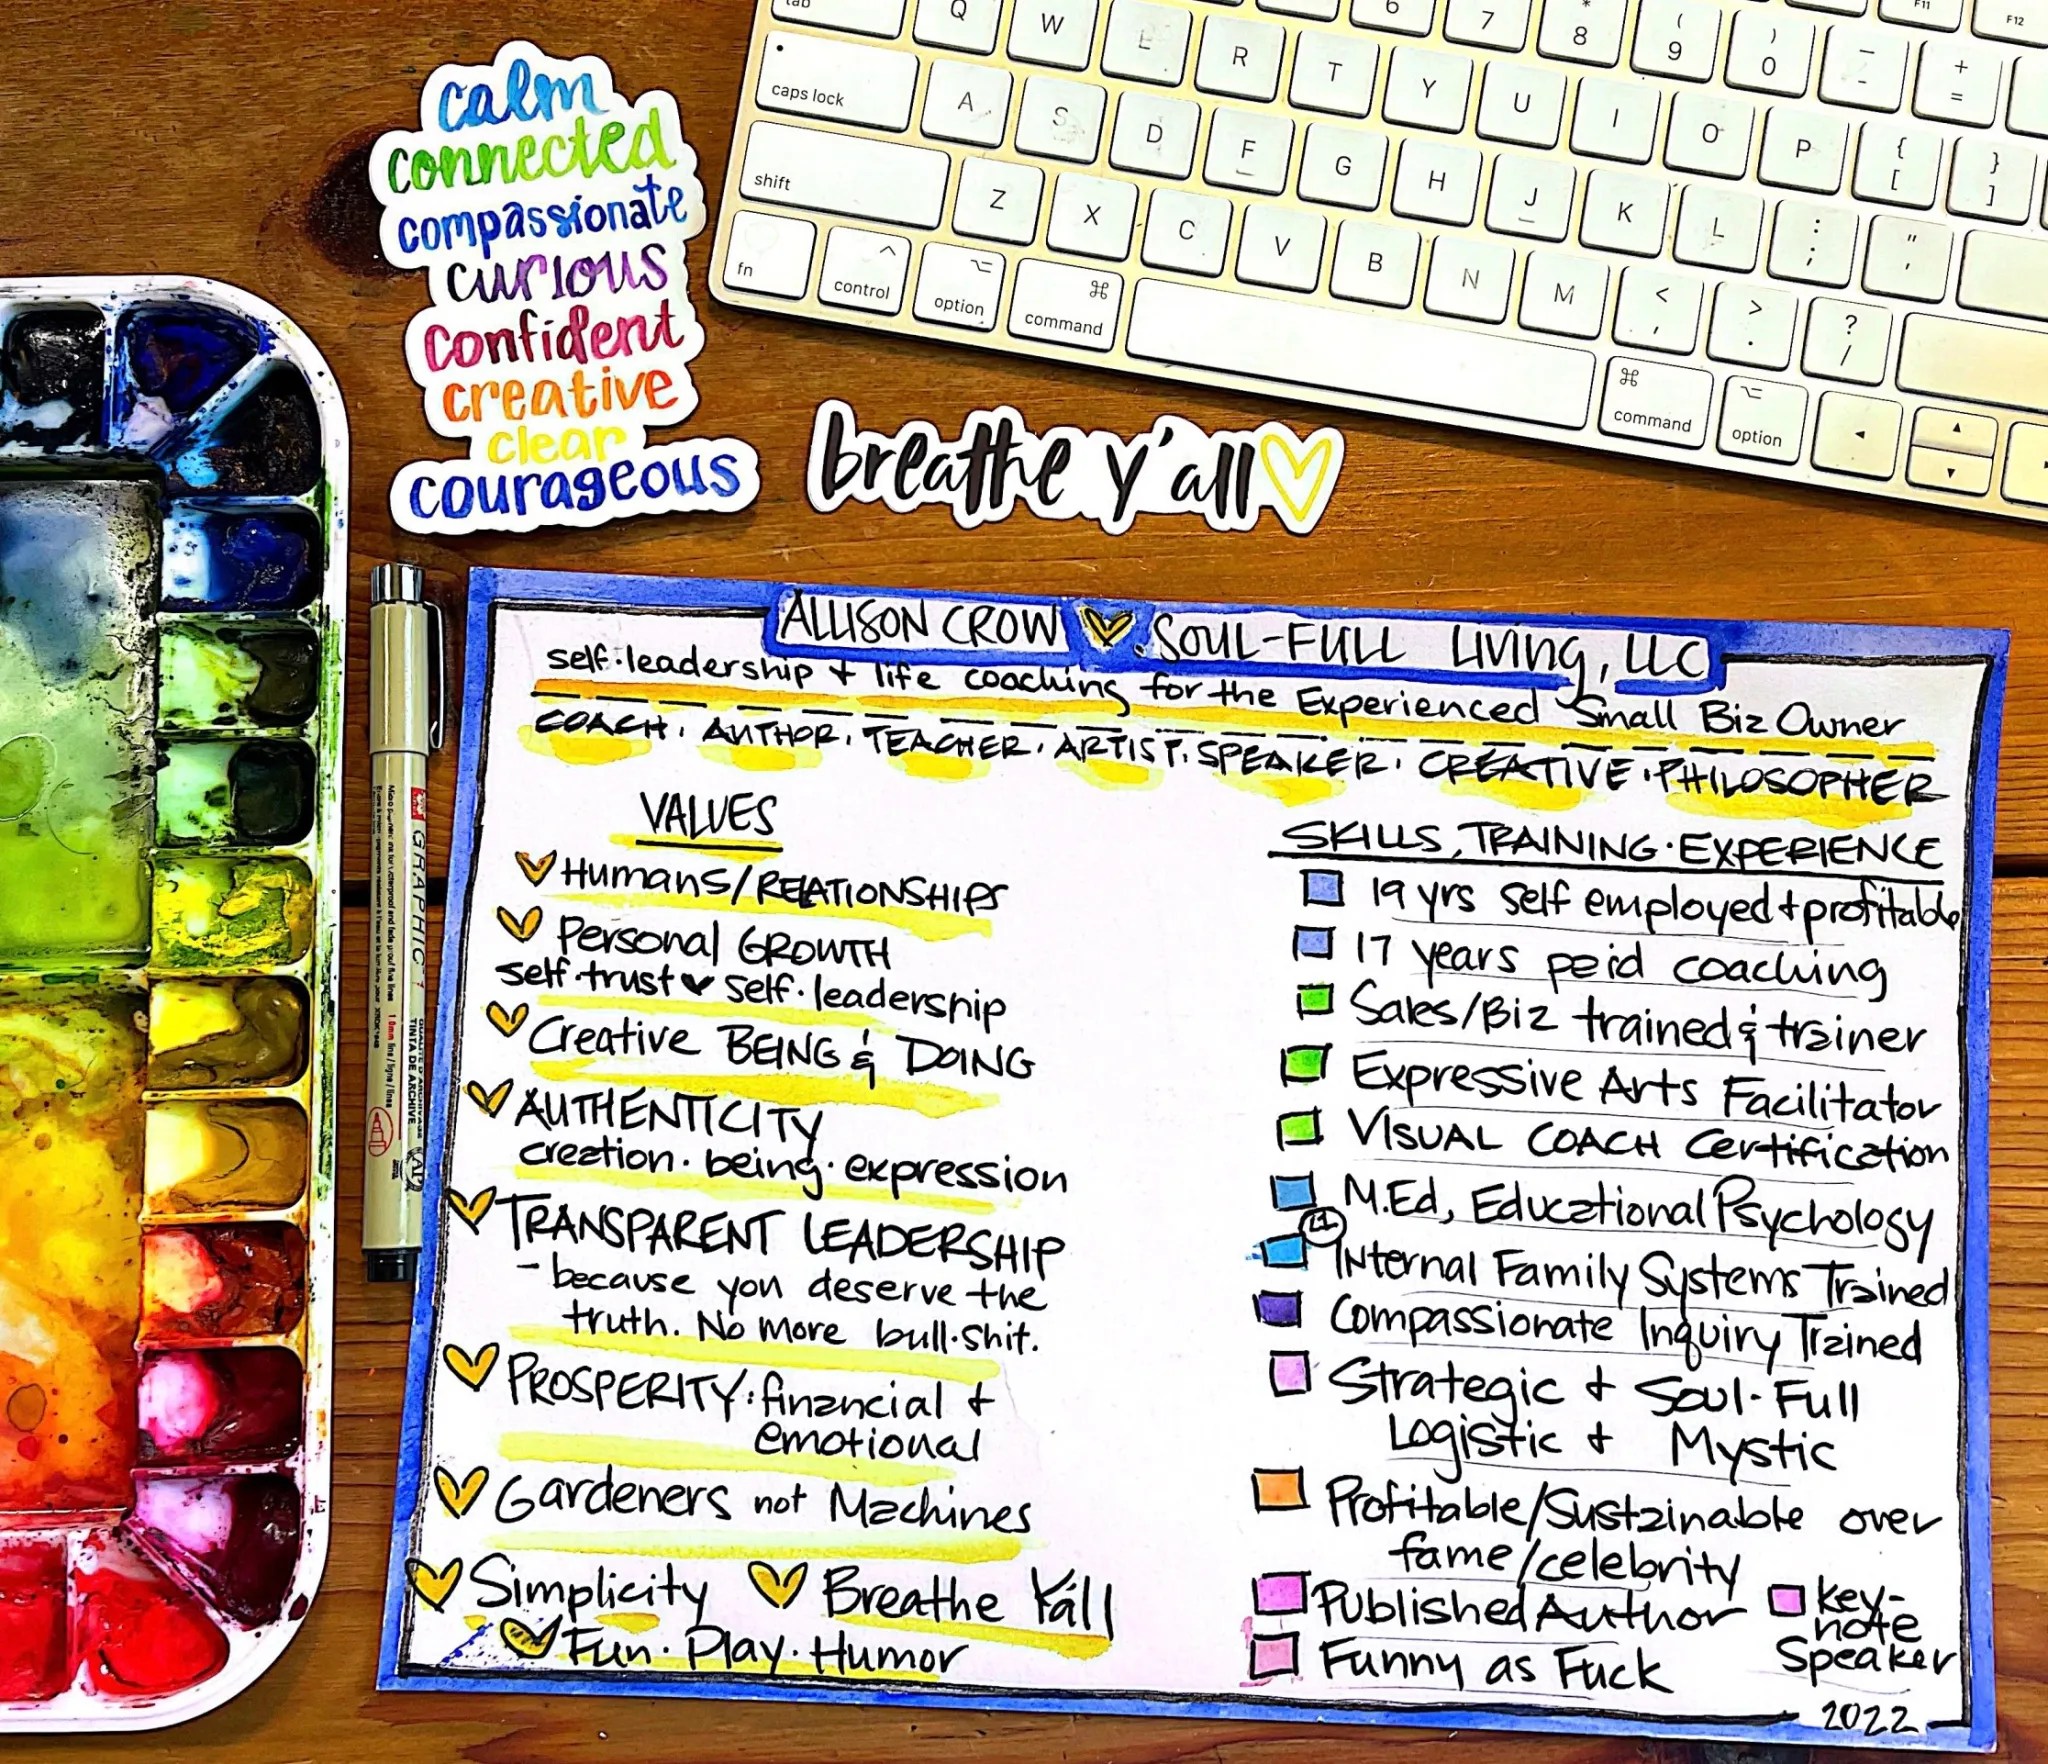 calm
connected
compassionate
curious
confident
creative
clear
courageous
breathe y'all
tab Q W E R T Y U I O P { [ } ]
6 7 * 8 ( 9 ) 0 _ - + =
F11 F12
caps lock A S D F G H J K L : ; " '
shift Z X C V B N M < , > . ? /
fn ^ control ⌥ option ⌘ command ⌘ command ⌥ option ◂ ▴ ▾
GRAPHIC 1
TINTA DE ARCHIVE
ALLISON CROW SOUL-FULL LIVING, LLC
self·leadership + life coaching for the Experienced Small Biz Owner
COACH · AUTHOR · TEACHER · ARTIST · SPEAKER · CREATIVE · PHILOSOPHER
VALUES
Humans/RELATIONSHIPS
Personal GROWTH
self·trust ♥ self·leadership
Creative BEING & DOING
AUTHENTICITY
creation · being · expression
TRANSPARENT LEADERSHIP
- because you deserve the
truth. No more bull·shit.
PROSPERITY · financial +
emotional
Gardeners not Machines
Simplicity Breathe Y'all
Fun · Play · Humor
SKILLS, TRAINING · EXPERIENCE
19 yrs self employed + profitable
17 years paid coaching
Sales/Biz trained & trainer
Expressive Arts Facilitator
VISUAL COACH Certification
M.Ed, Educational Psychology
L1 Internal Family Systems Trained
Compassionate Inquiry Trained
Strategic + Soul·Full
Logistic + Mystic
Profitable/Sustainable over
fame/celebrity
Published Author
Key-
note
Speaker
Funny as Fuck
2022